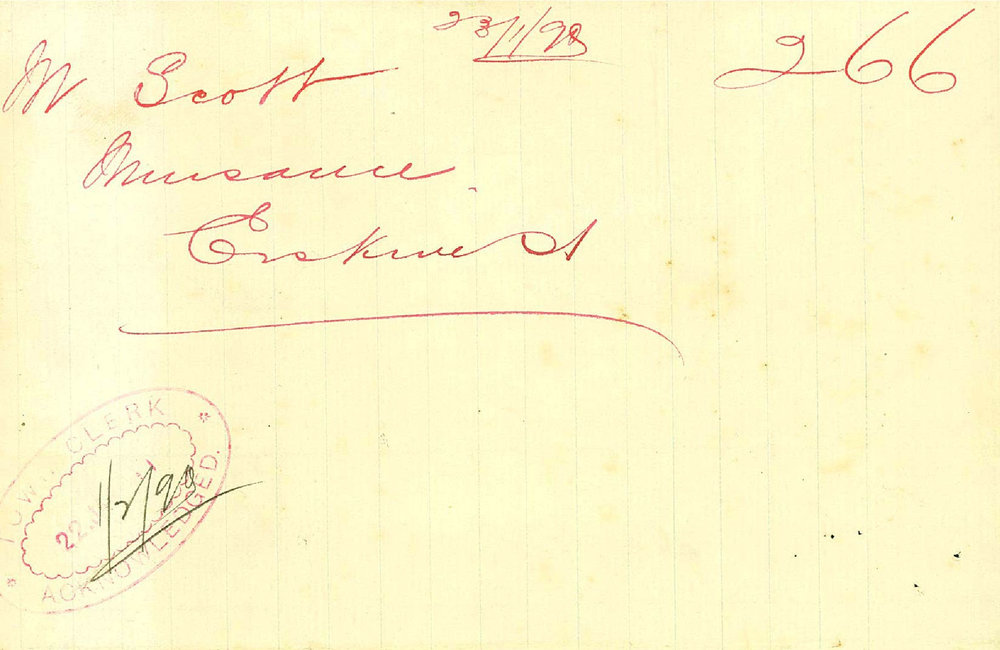 23/1/98
266
Mr Scott
Nuisance
Erskine St
TOWN CLERK
22
1/2/98
ACKNOWLEDGED.